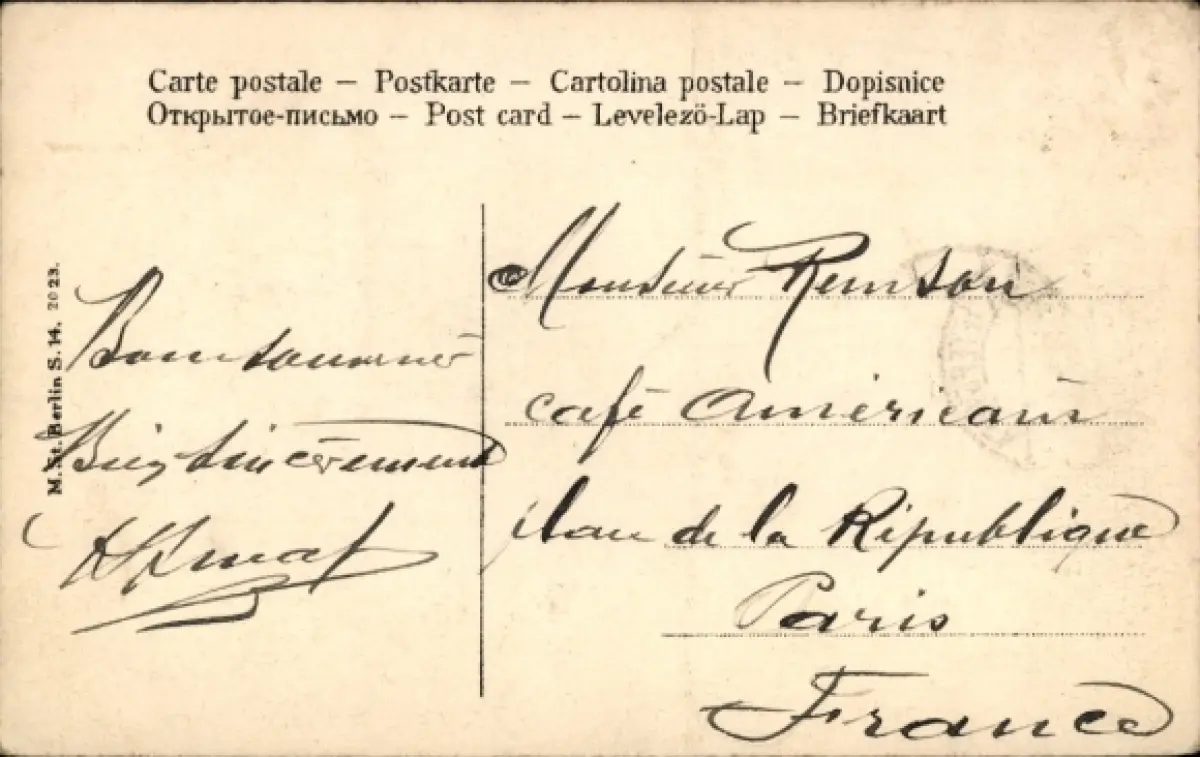 Carte postale – Postkarte – Cartolina postale – Dopisnice
Открытое-письмо – Post card – Levelezö-Lap – Briefkaart
M. St. Berlin S. 14. 2023.
Bien sincèrement
Monsieur Remson
café Américain
place de la République
Paris
France